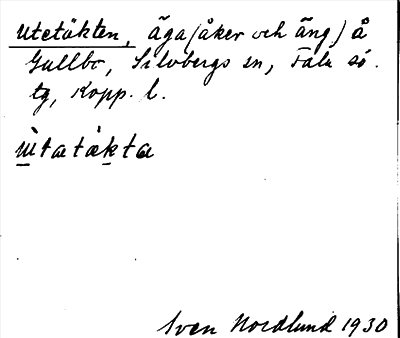 Utetäkten, äga (åker och äng) å
Gullbo, Silvbergs sn, Falu sö.
tg, Kopp. l.
ùtatàkta
Sven Nordlund 1930